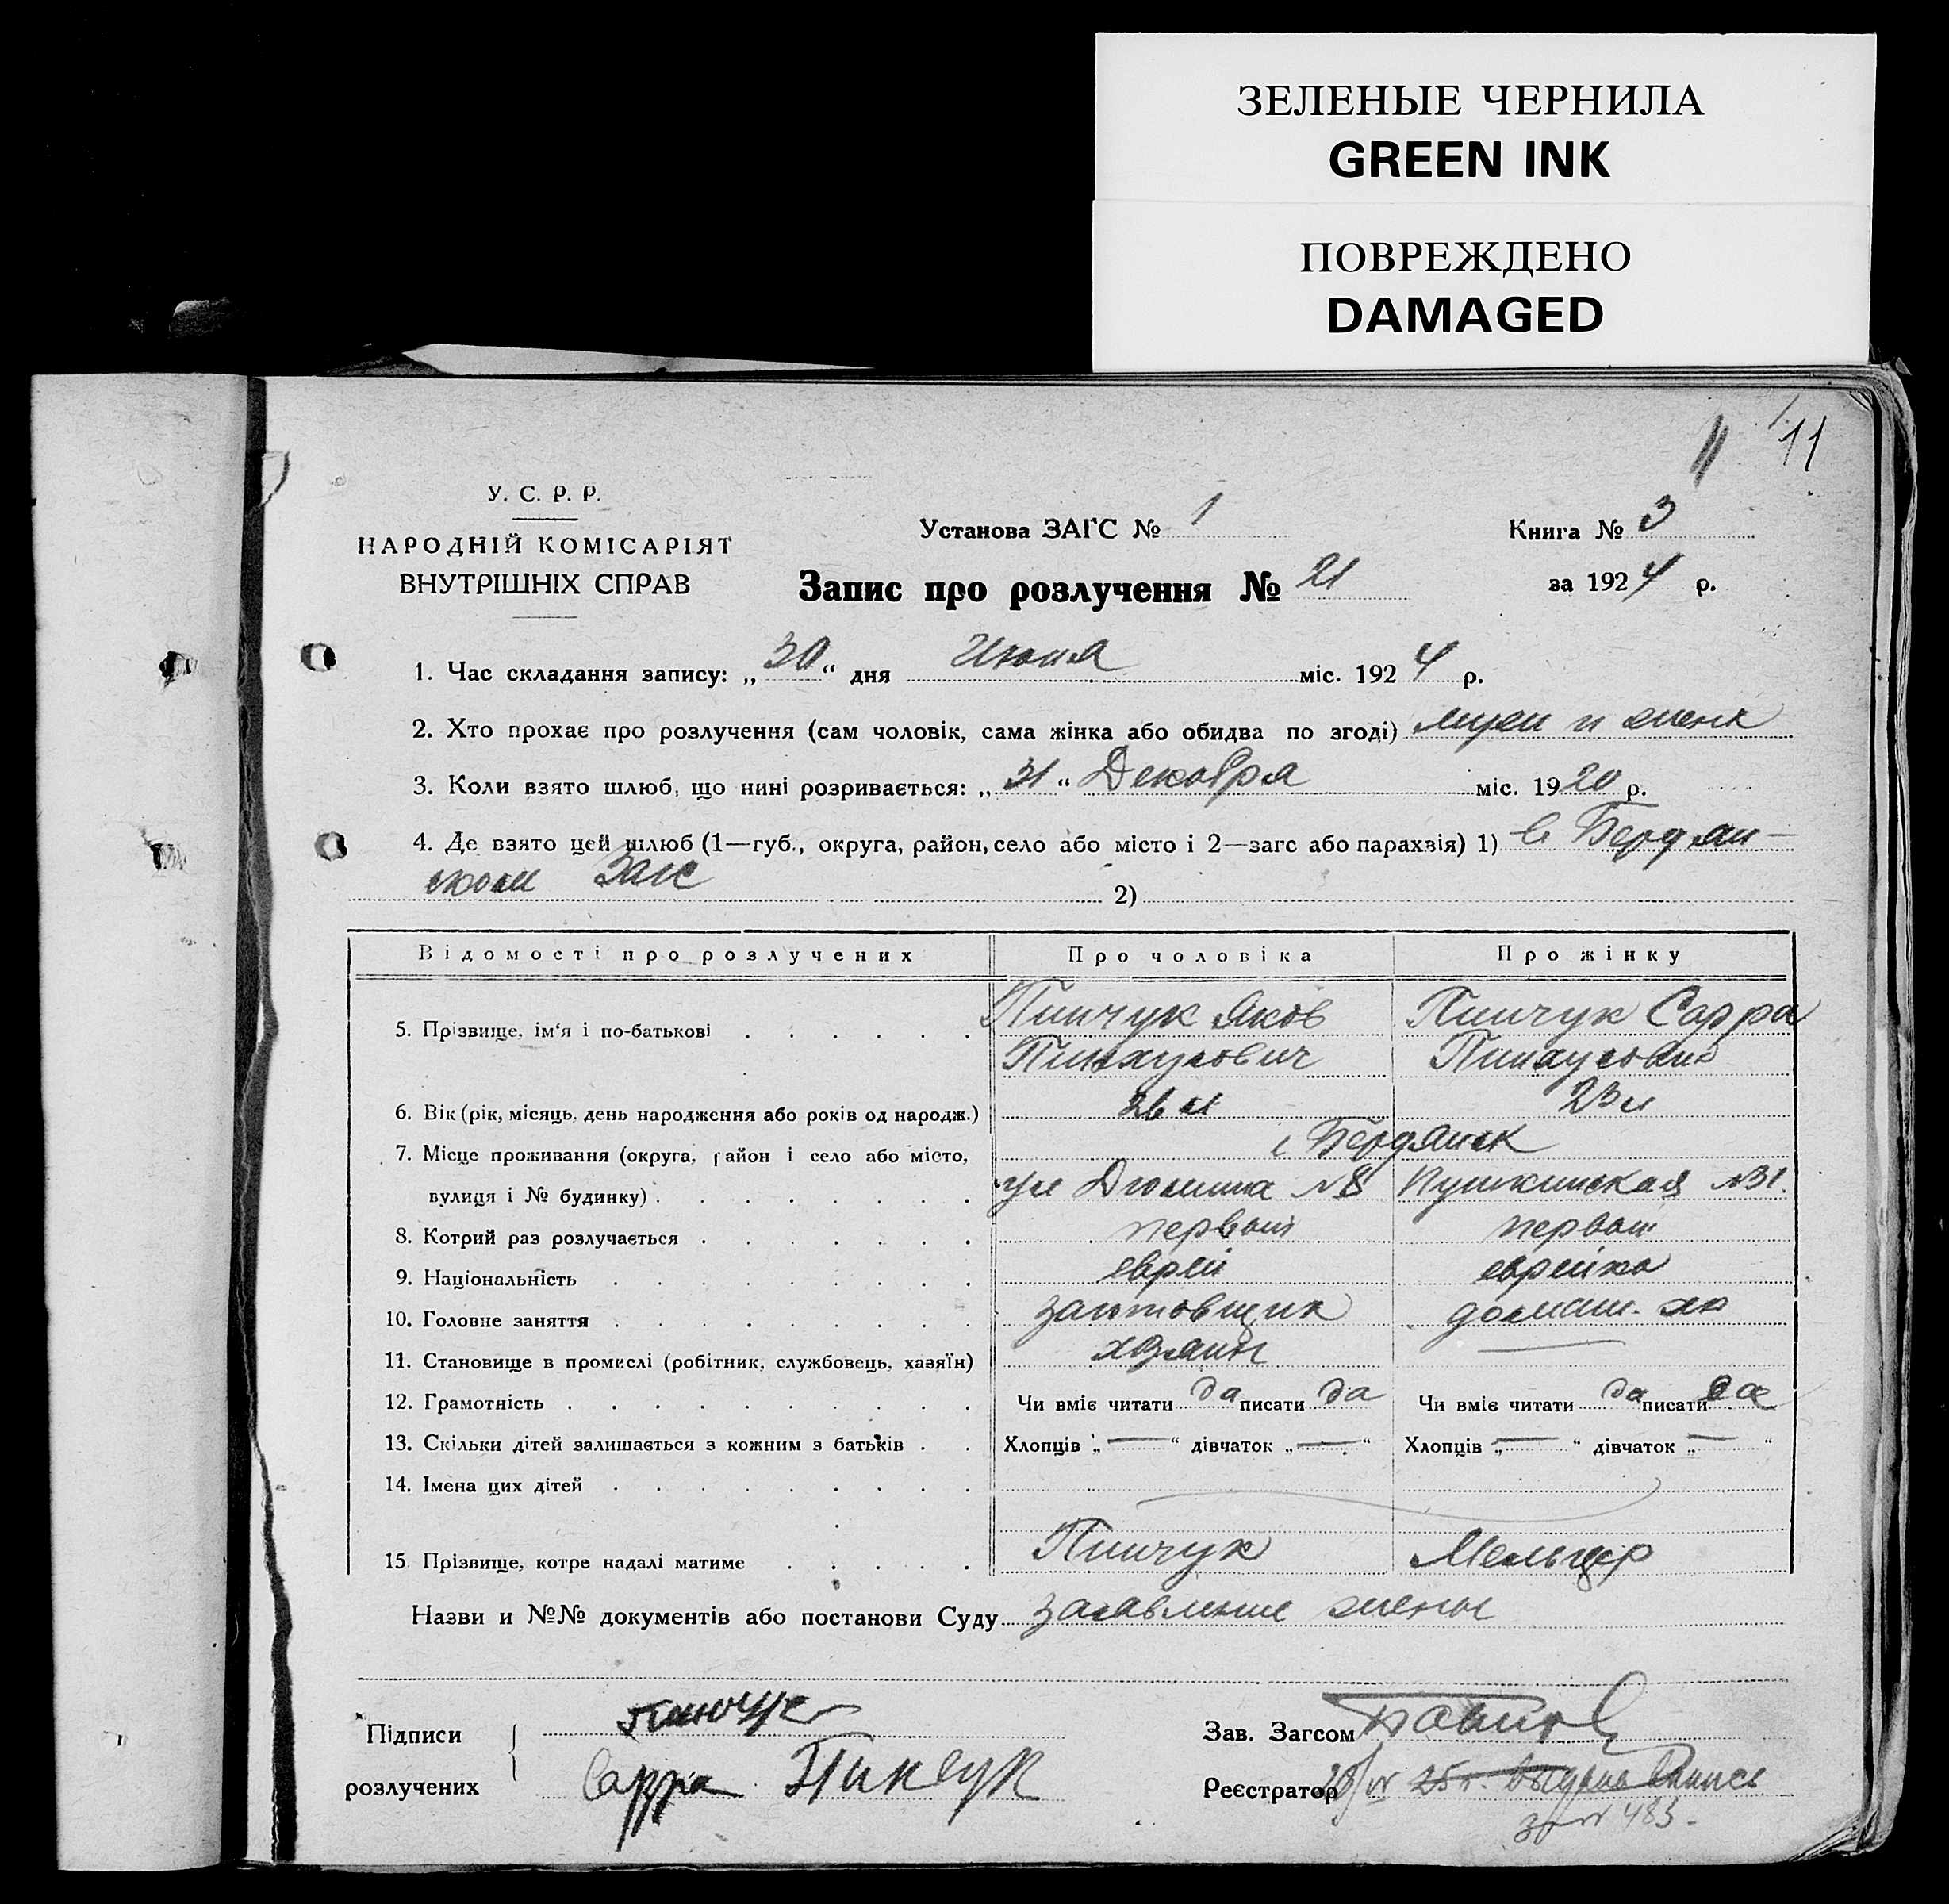 ЗЕЛЕНЫЕ ЧЕРНИЛА
GREEN INK
ПОВРЕЖДЕНО
DAMAGED
11
У. С. Р. Р.
НАРОДНІЙ КОМІСАРІЯТ
ВНУТРІШНІХ СПРАВ
Установа ЗАГС № 1
Книга № 3
Запис про розлучення № 21
за 1924 р.
1. Час складання запису: „30“ дня Июня міс. 1924 р.
2. Хто прохає про розлучення (сам чоловік, сама жінка або обидва по згоді) муж и жена
3. Коли взято шлюб, що нині розривається: „31“ Декабря міс. 1920 р.
4. Де взято цей шлюб (1—губ., округа, район, село або місто і 2—загс або парахвія) 1) в Бердян-
ском Загс 2)
Відомості про розлучених Про чоловіка Про жінку
5. Прізвище, ім'я і по-батькові Пинчук Яков Пинчук Сарра
Пинхусович
6. Вік (рік, місяць, день народження або років од народж.) 26 л 23 л
7. Місце проживання (округа, район і село або місто, г Бердянск
вулиця і № будинку) ул Дюмина №8 Пушкинская №31.
8. Котрий раз розлучається первый первый
9. Національність еврей еврейка
10. Головне заняття домаш. хоз
11. Становище в промислі (робітник, службовець, хазяїн) хозяин —
12. Грамотність Чи вміє читати да писати да Чи вміє читати да писати да
13. Скільки дітей залишається з кожним з батьків Хлопців „—“ дівчаток „—“ Хлопців „—“ дівчаток „—“
14. Імена цих дітей
15 Прізвище, котре надалі матиме Пинчук Мельцер
Назви и №№ документів або постанови Суду заявление жены
Підписи
розлучених
Сарра Пинчук
Зав. Загсом
Реєстратор
483.